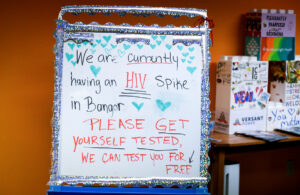 We are currently
having an HIV Spike
in Bangor
PLEASE GET
YOURSELF TESTED,
WE CAN TEST YOU FOR
FREE
VERSANT